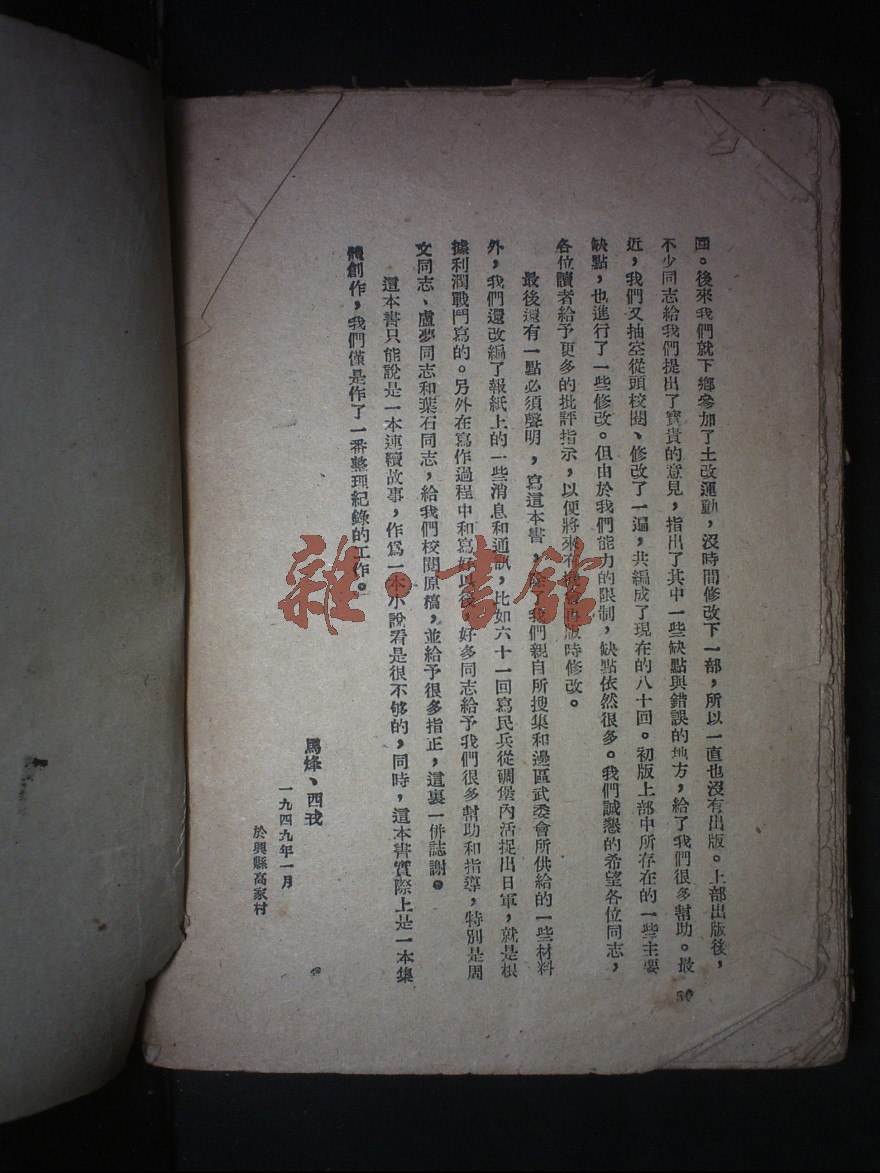 回。後來我們就下鄉參加了土改運動，沒時間修改下一部，所以一直也沒有出版。上部出版後，
不少同志給我們提出了寶貴的意見，指出了其中一些缺點與錯誤的地方，給了我們很多幫助。最
近，我們又抽空從頭校閱、修改了一遍，共編成了現在的八十回。初版上部中所存在的一些主要
缺點，也進行了一些修改。但由於我們能力的限制，缺點依然很多。我們誠懇的希望各位同志，
各位讀者給予更多的批評指示，以便將來有再版時修改。
最後還有一點必須聲明，寫這本書，除了我們親自所搜集和邊區武委會所供給的一些材料
外，我們還改編了報紙上的一些消息和通訊，比如六十一回寫民兵從碉堡內活捉出日軍，就是根
據利潤戰鬥寫的。另外在寫作過程中和寫好以後，好多同志給予我們很多幫助和指導，特別是周
文同志、盧夢同志和葉石同志，給我們校閱原稿，並給予很多指正，這裏一併誌謝。
這本書只能說是一本連續故事，作為一本小說看是很不够的，同時，這本書實際上是一本集
體創作，我們僅是作了一番整理紀錄的工作。
馬烽、西戎
一九四九年一月
於興縣高家村
雜·書館